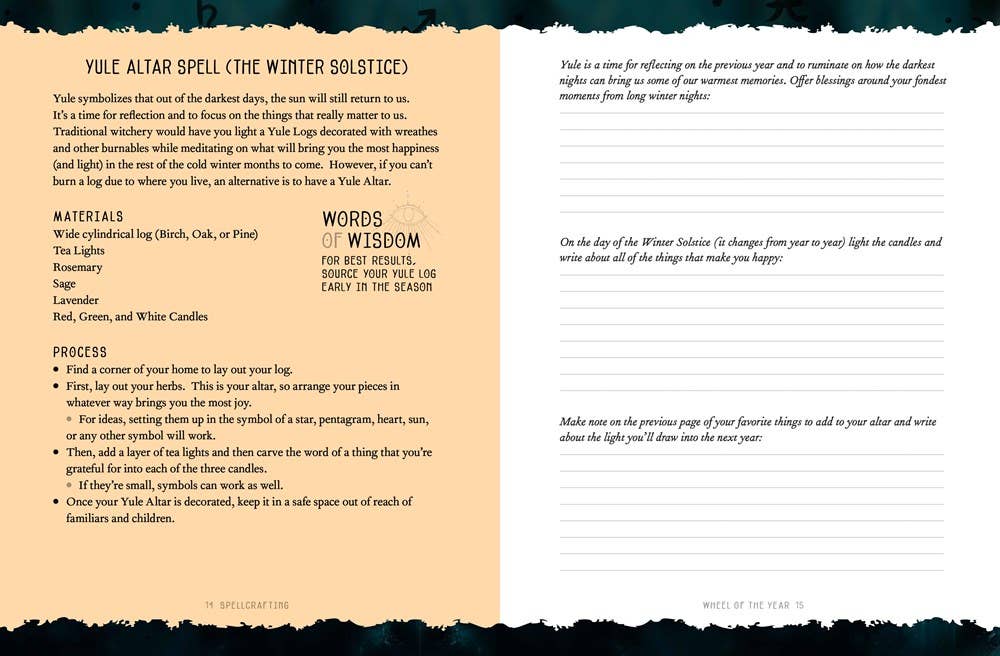 YULE ALTAR SPELL (THE WINTER SOLSTICE)
Yule symbolizes that out of the darkest days, the sun will still return to us.
It's a time for reflection and to focus on the things that really matter to us.
Traditional witchery would have you light a Yule Logs decorated with wreathes
and other burnables while meditating on what will bring you the most happiness
(and light) in the rest of the cold winter months to come.  However, if you can't
burn a log due to where you live, an alternative is to have a Yule Altar.
MATERIALS
Wide cylindrical log (Birch, Oak, or Pine)
Tea Lights
Rosemary
Sage
Lavender
Red, Green, and White Candles
WORDS
OF WISDOM
FOR BEST RESULTS,
SOURCE YOUR YULE LOG
EARLY IN THE SEASON
PROCESS
• Find a corner of your home to lay out your log.
• First, lay out your herbs.  This is your altar, so arrange your pieces in
whatever way brings you the most joy.
• For ideas, setting them up in the symbol of a star, pentagram, heart, sun,
or any other symbol will work.
• Then, add a layer of tea lights and then carve the word of a thing that you're
grateful for into each of the three candles.
• If they're small, symbols can work as well.
• Once your Yule Altar is decorated, keep it in a safe space out of reach of
familiars and children.
14 SPELLCRAFTING
Yule is a time for reflecting on the previous year and to ruminate on how the darkest
nights can bring us some of our warmest memories. Offer blessings around your fondest
moments from long winter nights:
On the day of the Winter Solstice (it changes from year to year) light the candles and
write about all of the things that make you happy:
Make note on the previous page of your favorite things to add to your altar and write
about the light you'll draw into the next year:
WHEEL OF THE YEAR 15